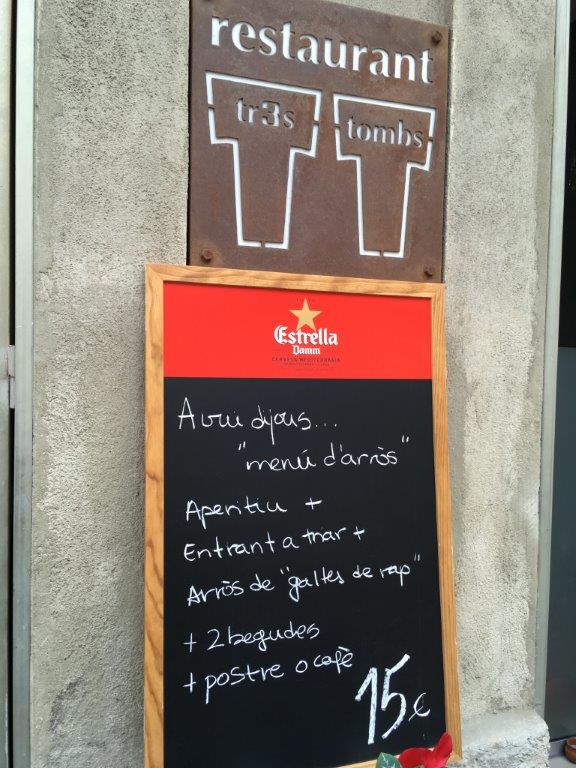 restaurant
tr3s tombs
Estrella
Damm
CERVEZA MEDITERRÁNEA
Avui dijous...
"menú d'arròs"
Aperitiu +
Entrant a triar +
Arròs de "galtes de rap"
+ 2 begudes
+ postre o cafè
15€